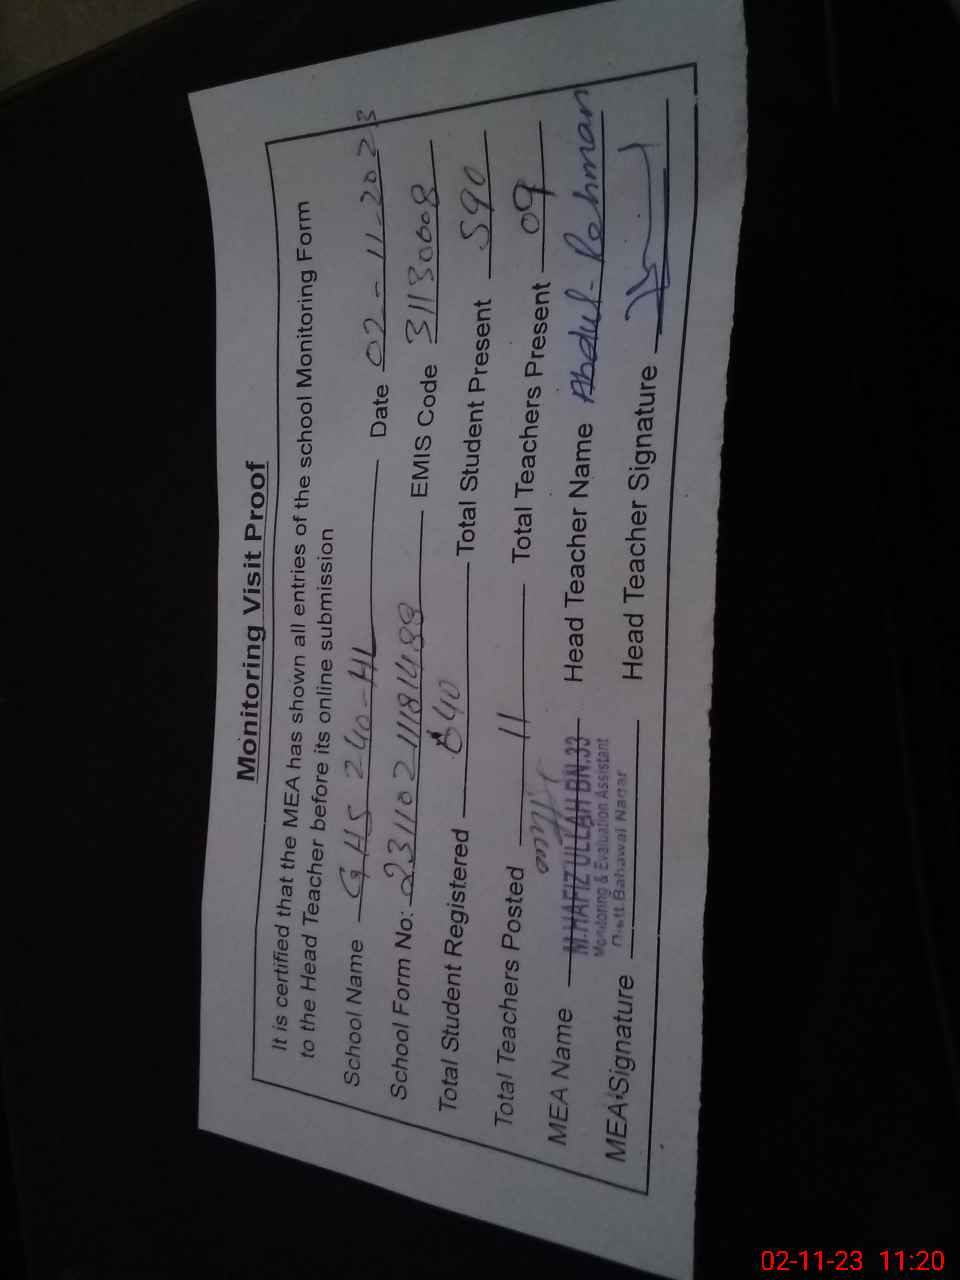 Monitoring Visit Proof
It is certified that the MEA has shown all entries of the school Monitoring Form
to the Head Teacher before its online submission
School Name GHS 240-HL Date 02-11-2023
School Form No: 23110211181488 EMIS Code 31130008
Total Student Registered 640 Total Student Present 590
Total Teachers Posted 11 Total Teachers Present 09
MEA Name M.HAFIZ ULLAH BN.33 Head Teacher Name Abdul-Rehman
Monitoring & Evaluation Assistant
Distt Bahawal Nagar
MEA Signature Head Teacher Signature
02-11-23 11:20